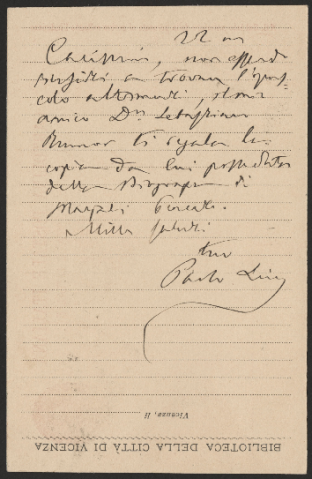 22 
Carissimo, non essendo
riuscito a trovare l'opus-
colo altrimenti, il mio
amico Dr. Sebastiano
Rumor ti regala la
copia da lui posseduta
della Biografia di
.
Mille saluti
tuo
Paolo Lioy
Vicenza, li
BIBLIOTECA DELLA CITTÀ DI VICENZA